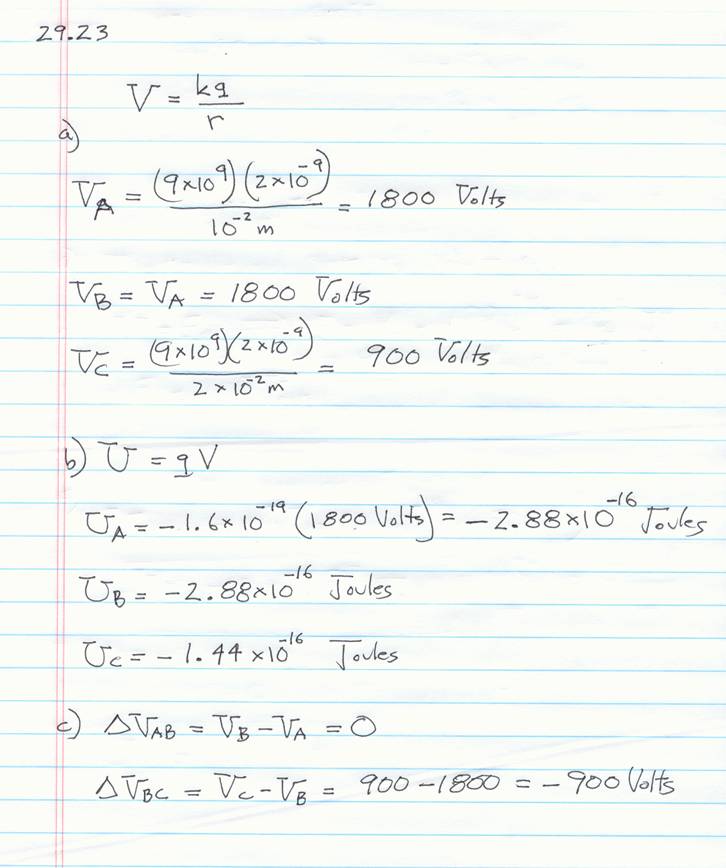 29.23
V = kq/r
a)
V_A = (9×10^9)(2×10^-9)/10^-2 m = 1800 Volts
V_B = V_A = 1800 Volts
V_C = (9×10^9)(2×10^-9)/2×10^-2 m = 900 Volts
b) U = qV
U_A = -1.6×10^-19 (1800 Volts) = -2.88×10^-16 Joules
U_B = -2.88×10^-16 Joules
U_C = -1.44×10^-16 Joules
c) ΔV_AB = V_B - V_A = 0
ΔV_BC = V_C - V_B = 900 - 1800 = -900 Volts